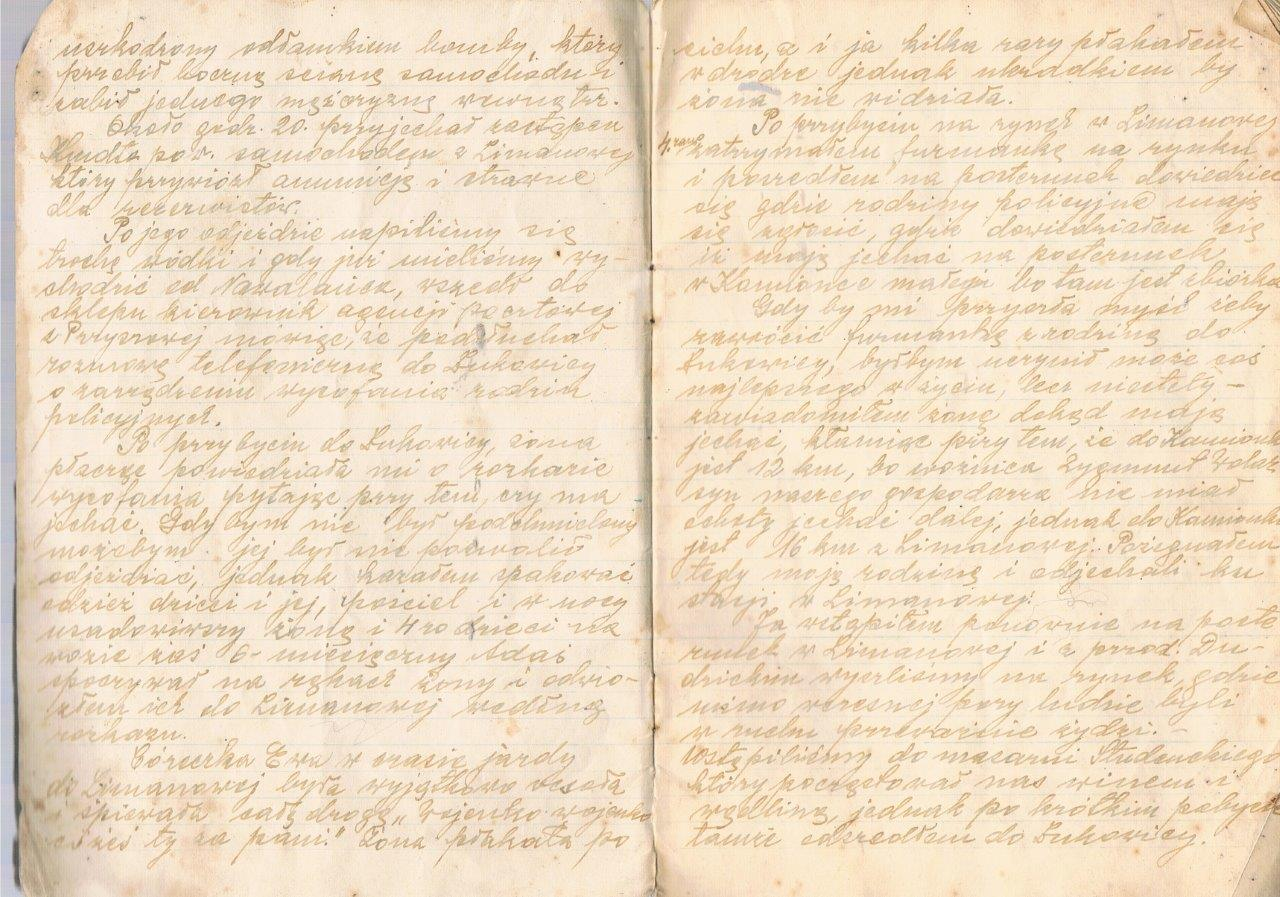 uszkodzony odłamkiem bomby, który
przebił boczną ścianę samochodu i
zabił jednego mężczyznę wewnątrz.
Około godz. 20. przyjechał zastępca
Kmdta pow. samochodem z Limanowej
który przywiózł amunicję i strawne
dla rezerwistów.
Po jego odjeździe napiliśmy się
trochę wódki i gdy już mieliśmy wy-
chodzić od Nawalańca, wszedł do
sklepu kierownik agencji pocztowej
z Przyszowej mówiąc, że podsłuchał
rozmowę telefoniczną do Łukowicy
o zarządzeniu wycofania rodzin
policyjnych.
Po przybyciu do Łukowicy, żona
płacząc powiedziała mi o rozkazie
wycofania pytając przy tem, czy ma
jechać. Gdybym nie był podchmielony
możebym jej był nie pozwolił
odjeżdżać, jednak kazałem spakować
odzież dzieci i jej, pościel i w nocy
usadowiwszy żonę i 4ro dzieci na
wozie zaś 6-miesięczny Adaś
spoczywał na rękach żony i odwio-
złem ich do Limanowej według
rozkazu.
Córeczka Ewa w czasie jazdy
do Limanowej była wyjątkowo wesoła
i śpiewała całą drogę „Wojenko wojenko
cóżeś ty za pani." Żona płakała po
cichu, a i ja kilka razy płakałem
w drodze jednak ukradkiem by
żona nie widziała.
Po przybyciu na rynek w Limanowej
4. rano zatrzymałem furmankę na rynku
i poszedłem na posterunek dowiedzieć
się gdzie rodziny policyjne mają
się zgłosić, gdzie dowiedziałem się
iż mają jechać na posterunek
w Kamionce małej bo tam jest zbiórka
Gdyby mi przyszła myśl żeby
zawrócić furmankę z rodziną do
Łukowicy, byłbym uczynił może coś
najlepszego w życiu, lecz niestety –
zawiadomiłem żonę dokąd mają
jechać, kłamiąc przy tem, że do Kamionki
jest 12 km, bo woźnica Zygmunt
syn naszego gospodarza nie miał
ochoty jechać dalej, jednak do Kamionki
jest 16 km z Limanowej. Pożegnałem
tedy moją rodzinę i odjechali ku
stacji w Limanowej.
Ja wstąpiłem ponownie na poste
runek w Limanowej i z przod. Du-
dzickim wyszliśmy na rynek, gdzie
mimo wczesnej pory ludzie byli
w ruchu przeważnie żydzi. –
Wstąpiliśmy do masarni Studenckiego
który poczęstował nas winem i
wędliną, jednak po krótkim pobycie
tamże odszedłem do Łukowicy.